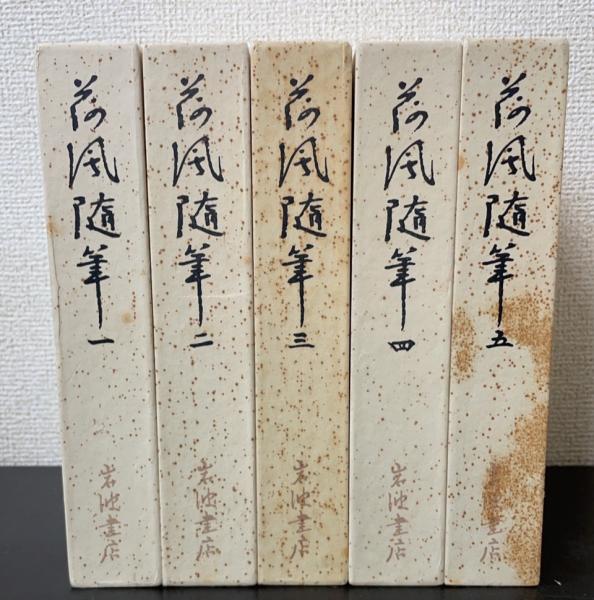 荷風随筆 一
岩波書店
荷風随筆 二
岩波書店
荷風随筆 三
岩波書店
荷風随筆 四
岩波書店
荷風随筆 五
岩波書店